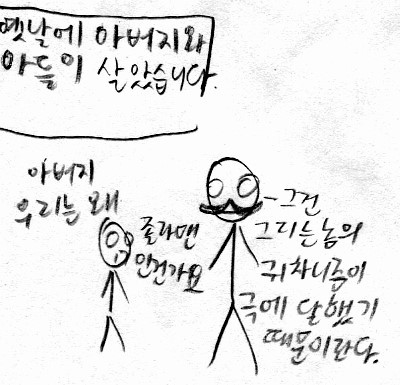 옛날에 아버지와
아들이 살았습니다.
아버지
우리는 왜
졸라맨
인건가요
-그건
그리는놈의
귀차니즘이
극에 달했기
때문이란다.